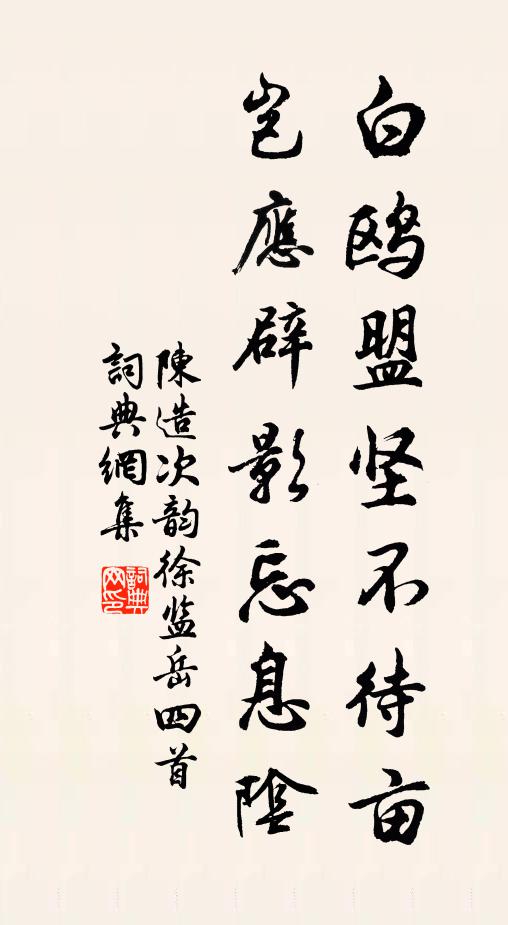 白鸥盟坚不待亩
岂應辟影忘息陰
陳造次韵徐监岳四首
詞典網集
詞典网印